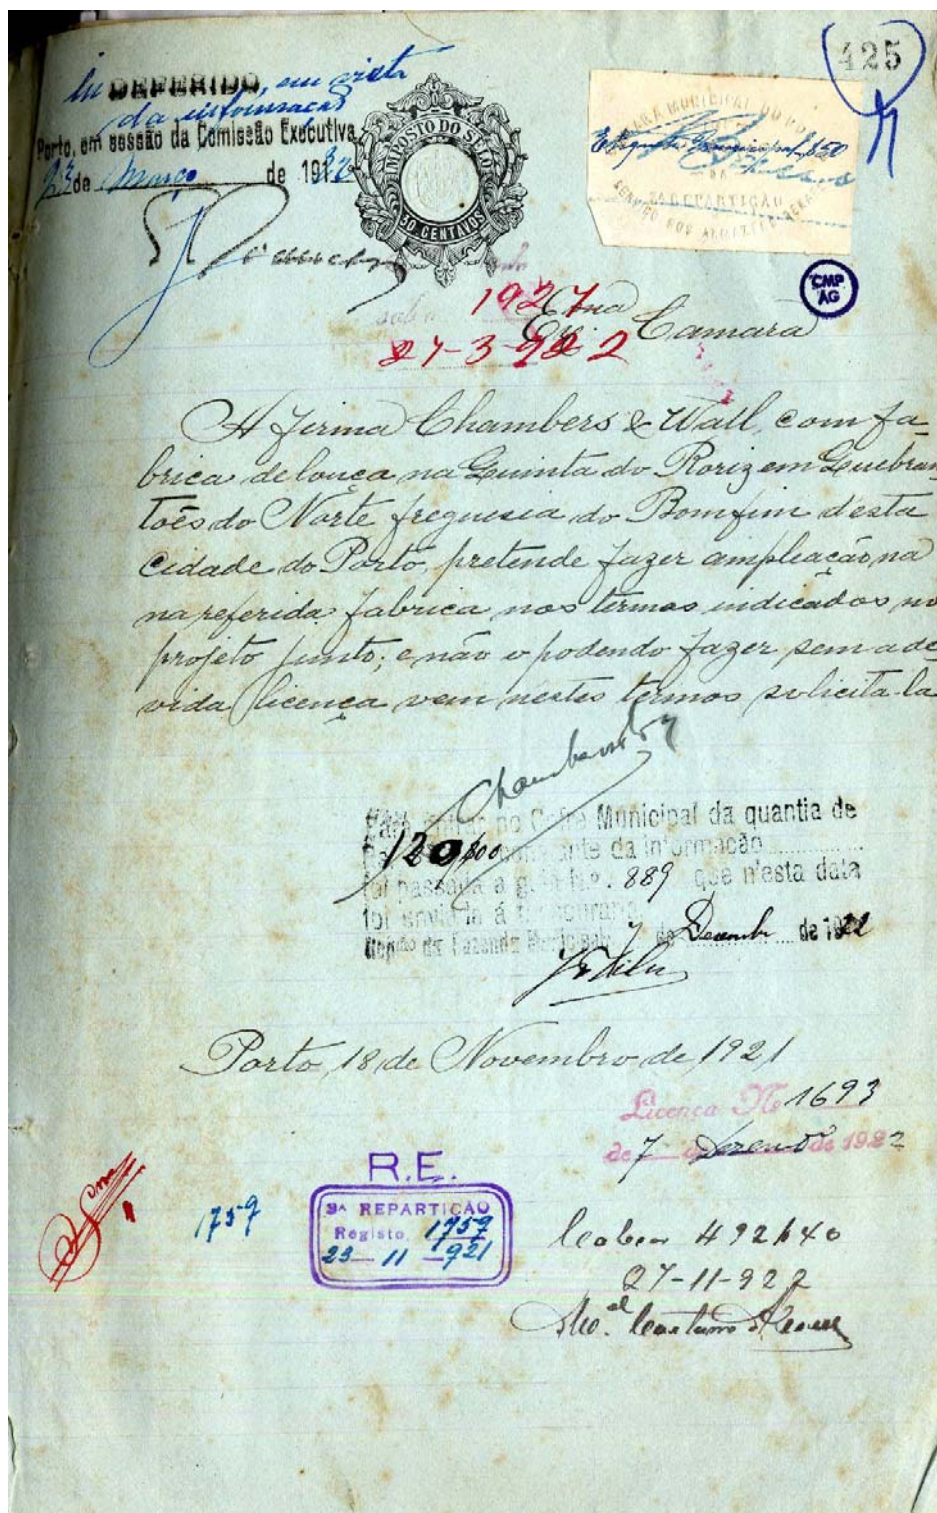 425
InDEFERIDO, em vista
da informação
Porto, em sessão da Comissão Executiva
23 de Março de 1922
IMPOSTO DO SELO
30 CENTAVOS
CAMARA MUNICIPAL DO PORTO
3ª REPARTIÇÃO
CMP
AG
1927
27-3-922
Exma
Camara
A firma Chambers & Wall, com fa-
brica de louça na Quinta do Roriz em Quebran-
tões do Norte freguesia do Bomfim d'esta
cidade do Porto, pretende fazer ampliação na
na referida fabrica nos termos indicados no
projeto junto; e não o podendo fazer sem a de-
vida licença vem nestes termos solicita-la
Para entrar no Cofre Municipal da quantia de
120$00 constante da informação
foi passada a guia n.º 889 que n'esta data
foi enviada á thesouraria
Repão da Fazenda Municipal, 7 de Dezembr de 1922
Porto, 18 de Novembro de 1921
Licença Nº 1693
de 7 de Dezembº de 1922
R.E.
3ª REPARTIÇÃO
Registo 1759
23-11-921
1759
492$40
27-11-922